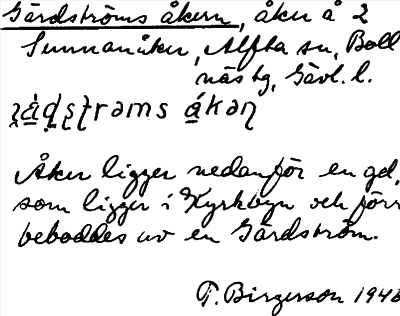 Gärdströms åkern, åker å 2
Sunnanåker, Alfta sn, Boll
näs tg, Gävl. l.
åkən
Åker ligger nedanför en gd,
som ligger i Kyrkbyn och förr
beboddes av en Gärdström.
F. Birgerson 194